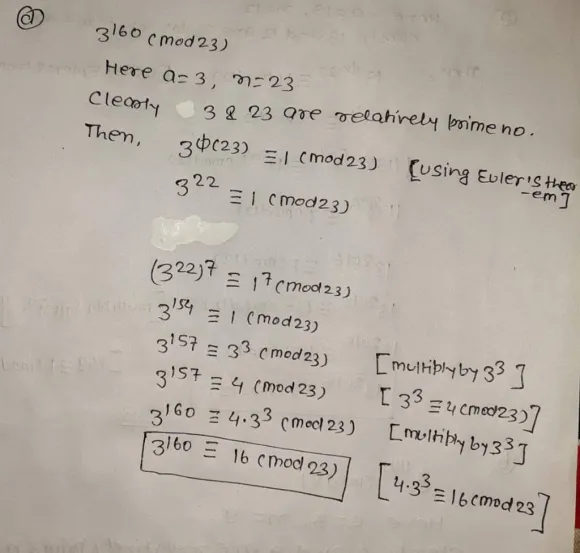 (d)
3^160 (mod 23)
Here a = 3, n = 23
Clearly 3 & 23 are relatively prime no.
Then, 3^ϕ(23) ≡ 1 (mod 23) [Using Euler's theor
-em]
3^22 ≡ 1 (mod 23)
(3^22)^7 ≡ 1^7 (mod 23)
3^154 ≡ 1 (mod 23)
3^157 ≡ 3^3 (mod 23) [multiply by 3^3]
3^157 ≡ 4 (mod 23) [3^3 ≡ 4 (mod 23)]
3^160 ≡ 4.3^3 (mod 23) [multiply by 3^3]
3^160 ≡ 16 (mod 23) [4.3^3 ≡ 16 (mod 23]